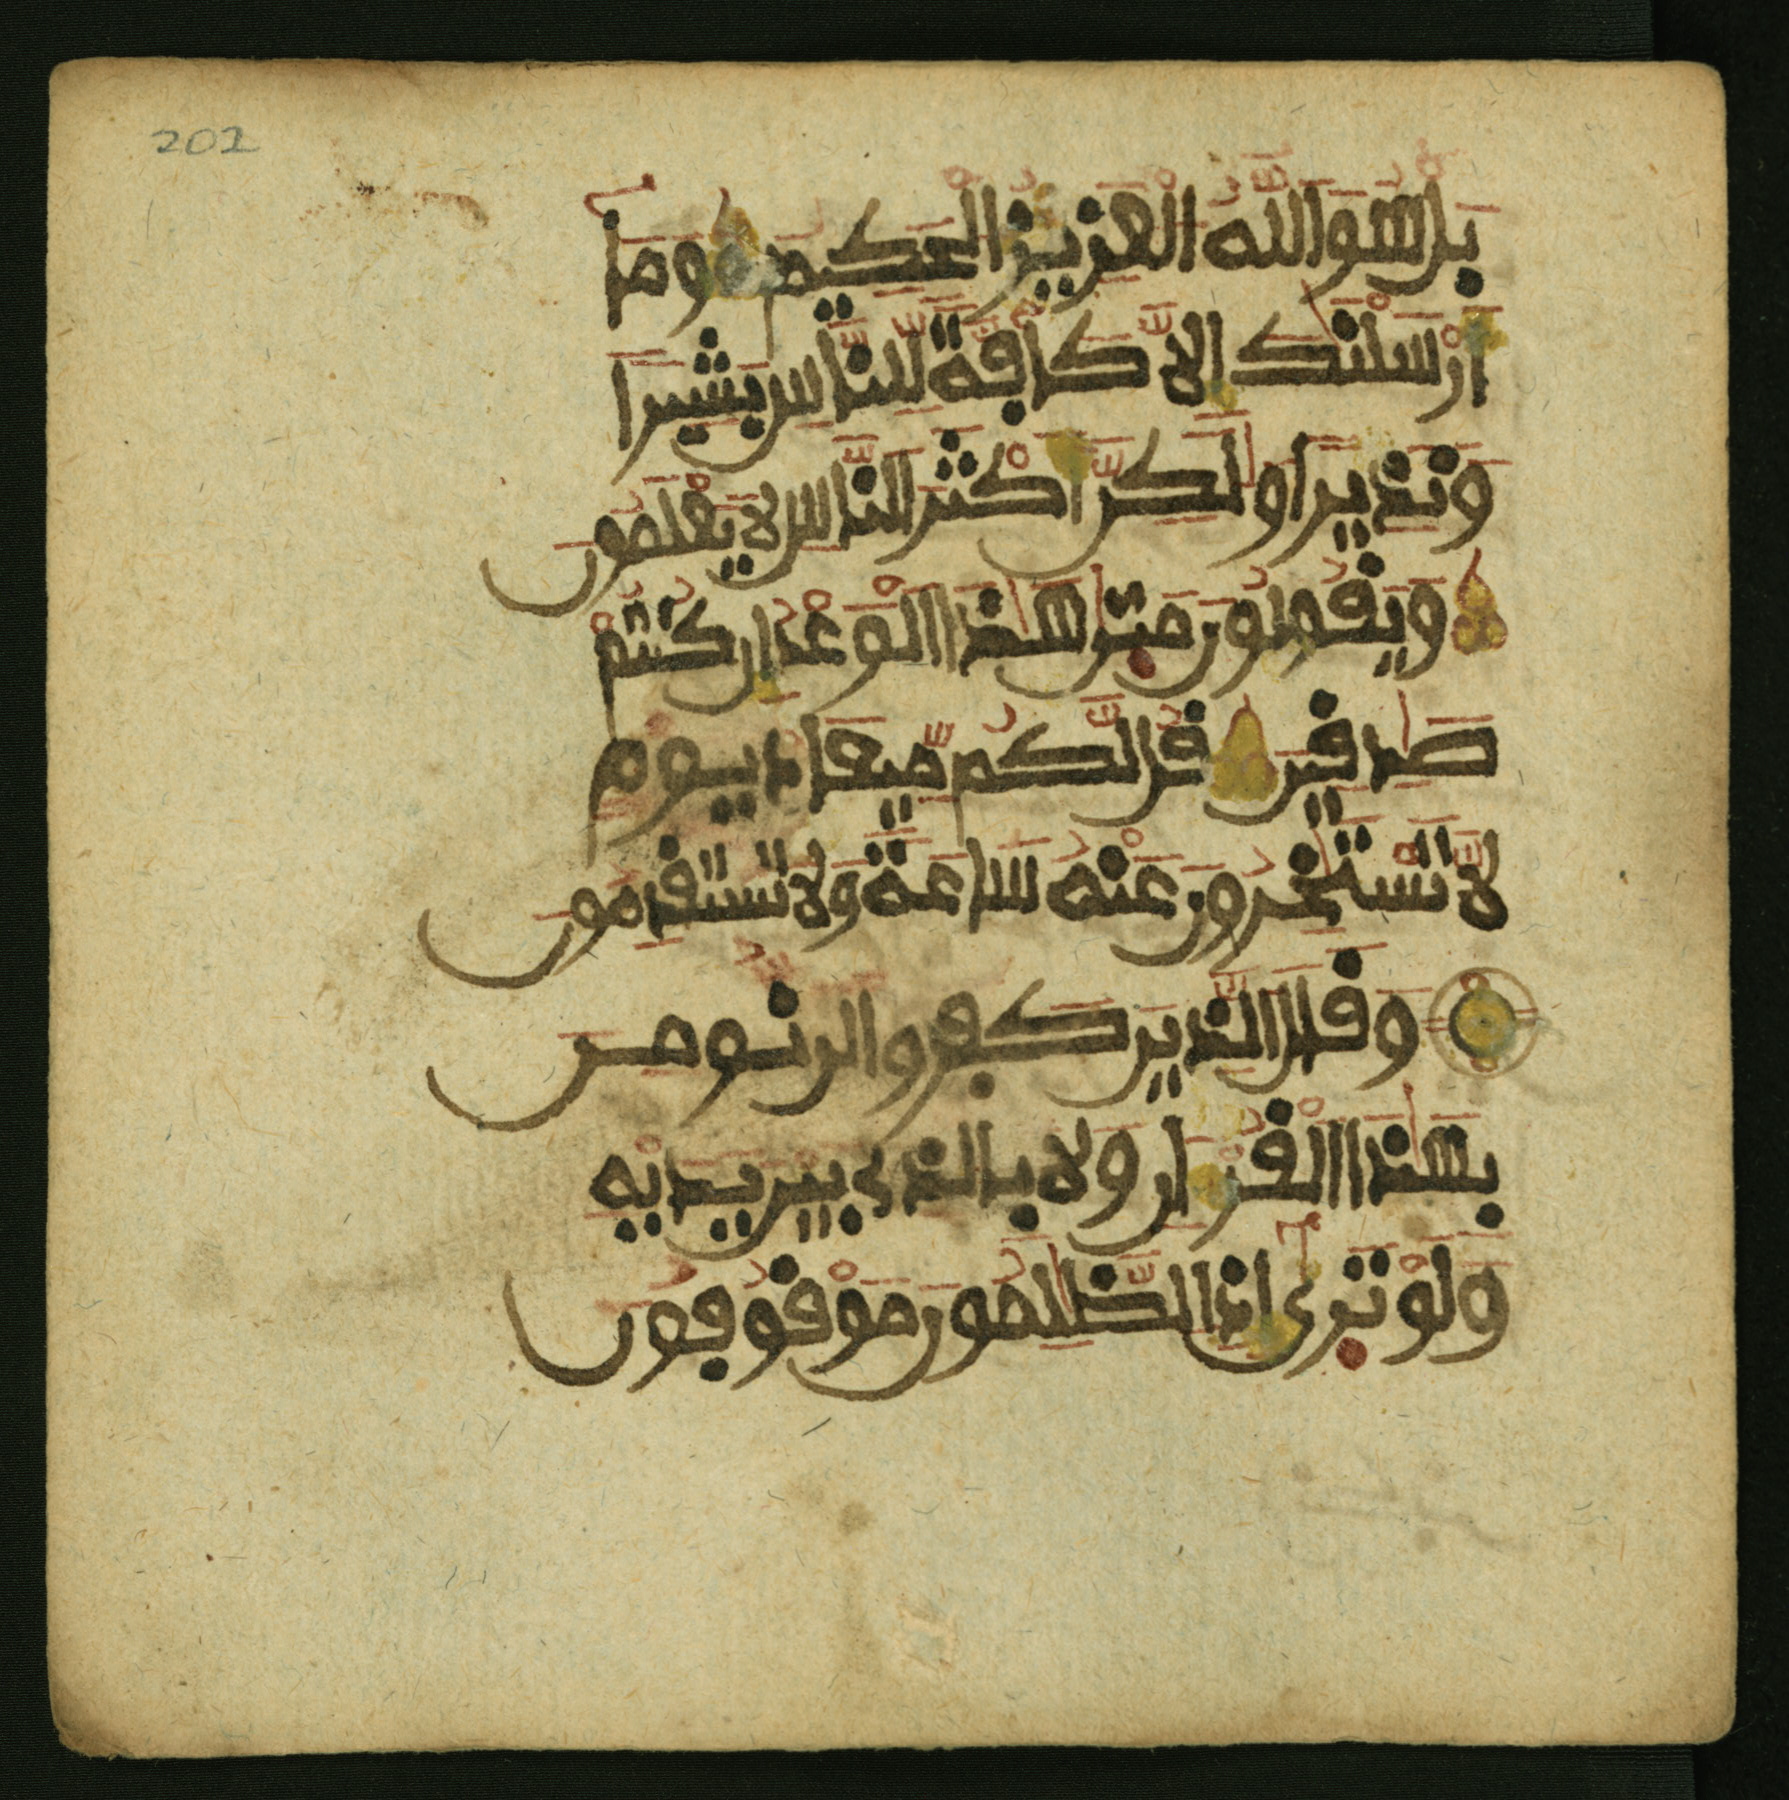 202
بَلْ هُوَ اللَّهُ الْعَزِيزُ الْحَكِيمُ وَمَا
أَرْسَلْنَٰكَ إِلَّا كَافَّةً لِّلنَّاسِ بَشِيرًا
وَنَذِيرًا وَلَٰكِنَّ أَكْثَرَ النَّاسِ لَا يَعْلَمُونَ
وَيَقُولُونَ مَتَىٰ هَٰذَا الْوَعْدُ إِن كُنتُمْ
صَٰدِقِينَ قُل لَّكُم مِّيعَادُ يَوْمٍ
لَّا تَسْتَـْٔخِرُونَ عَنْهُ سَاعَةً وَلَا تَسْتَقْدِمُونَ
وَقَالَ الَّذِينَ كَفَرُوا لَن نُّومِنَ
بِهَٰذَا الْقُرْءَانِ وَلَا بِالَّذِى بَيْنَ يَدَيْهِ
وَلَوْ تَرَىٰ إِذِ الظَّٰلِمُونَ مَوْقُوفُونَ